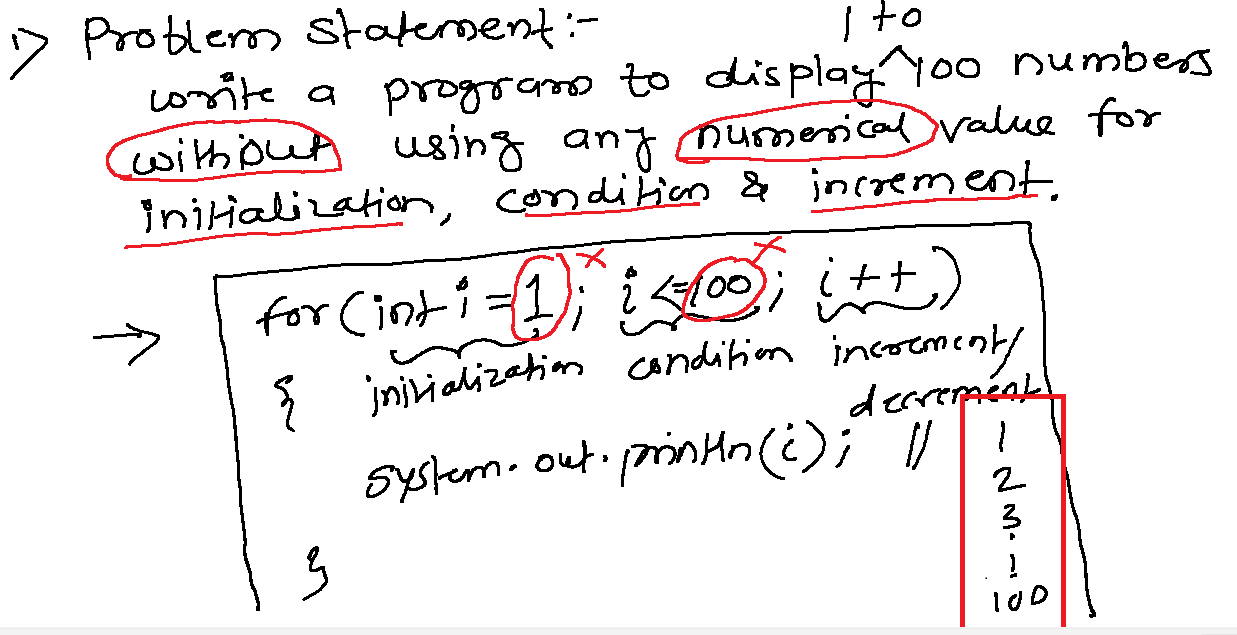 1> Problem Statement:-
write a program to display ^ 1 to 100 numbers
without using any numerical value for
initialization, condition & increment.
→ for(int i = 1; x i <= 100; x i++)
{ initialization condition increment/
decrement
system.out.println(i); // 1
2
3
!
100
}